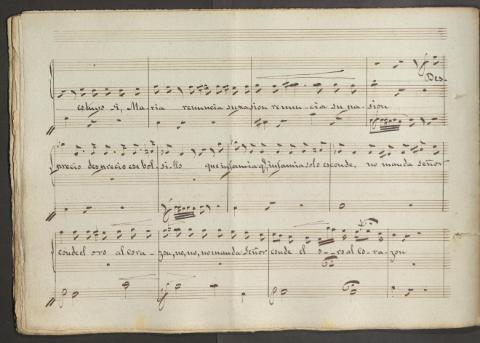 Des-
es hijo d, Ma-ria renuncia su pasion renun-cia su pasion
precio desprecio ese bol-si-llo que infamia q, infamia solo esconde, no manda señor
conde el oro al cora-zon, no, no, no manda Señor conde el o-ro al co-ra-zon